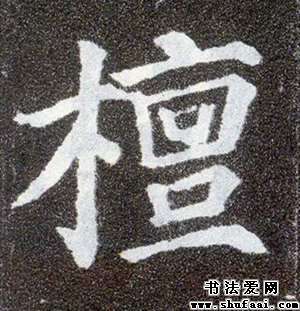 檀
书法爱网
www.shufaai.com